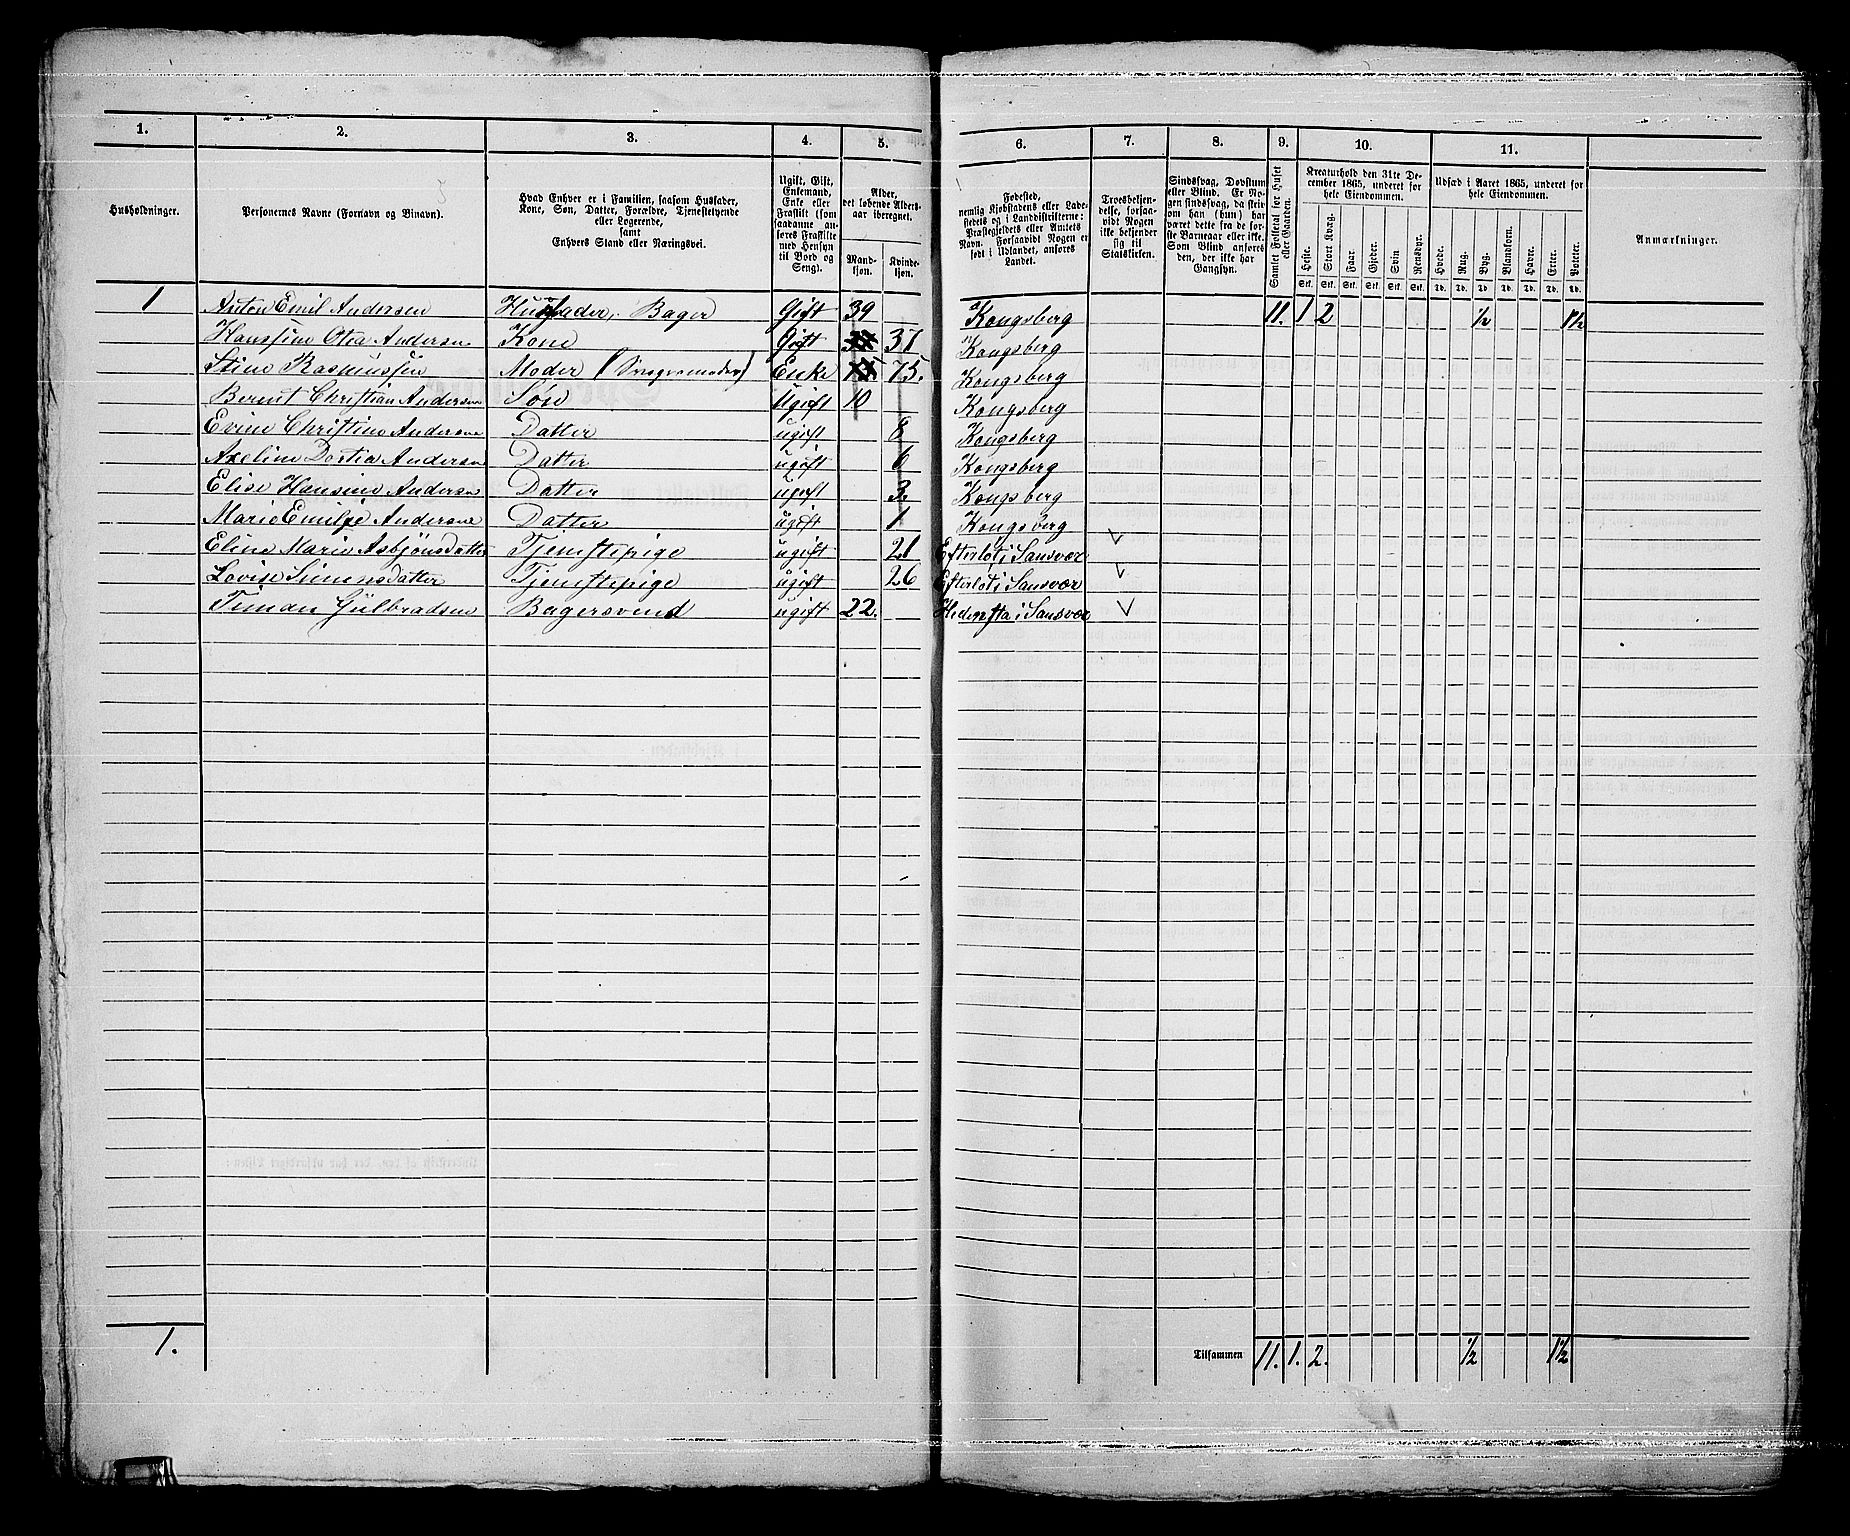 1. 2. 3. 4. 5. 6. 7. 8. 9. 10. 11.
Husholdninger.
Personernes Navne (Fornavn og Binavn).
Hvad Enhver er i Familien, saasom Husfader,
Kone, Søn, Datter, Forældre, Tjenestetyende
eller Logerende,
samt
Enhvers Stand eller Næringsvei.
Ugift, Gift,
Enkemand,
Enke eller
Fraskilt (som
saadanne an-
føres Fraskilte
med Hensyn
til Bord og
Seng).
Alder,
det løbende Alders-
aar iberegnet.
Mand-
kjøn.
Kvinde-
kjøn.
Fødested,
nemlig Kjøbstadens eller Lade-
stedets og i Landdistrikterne:
Præstegjeldets eller Amtets
Navn. Forsaavidt Nogen er
født i Udlandet, anføres
Landet.
Troesbekjen-
delse, forsaa-
vidt Nogen
ikke bekjender
sig til
Statskirken.
Sindssvag, Døvstum
eller Blind. Er No-
gen sindssvag, da skriv
om han (hun) har
været dette fra de før-
ste Barneaar eller ikke.
Som Blind anføres
den, der ikke har
Gangsyn.
Samlet Folketal for Huset
eller Gaarden.
Kreaturhold den 31te De-
cember 1865, underet for
hele Eiendommen.
Heste. Stort Kvæg. Faar. Gjeder. Svin Rensdyr.
Stk. Stk. Stk. Stk. Stk. Stk.
Udsæd i Aaret 1865, underet for
hele Eiendommen.
Hvede. Rug. Byg. Blandkorn. Havre. Erter. Poteter.
Td. Td. Td. Td. Td. Td. Td.
Anmærkninger.
1 Anton Emil Andersen Husfader, Bager Gift 39 Kongsberg 11. 1 2 ½ 1½
Hanssine Otia Andersen Kone Gift 37 Kongsberg
Stine Rasmussen Moder (Svigermoder) Enke 75. Kongsberg
Bernt Christian Andersen Søn Ugift 10 Kongsberg
Evine Christine Andersen Datter ugift 8 Kongsberg
Axeline Dortia Andersen Datter ugift 6 Kongsberg
Elise Hansine Andersen Datter ugift 3. Kongsberg
Marie Emilie Andersen Datter ugift 1 Kongsberg
Eline Marie Asbjønsdatter Tjenstepige ugift 21 Efterlot i Sansvær
Lovise Simensdatter Tjenstepige ugift 26 Efterlot i Sansvær
Timan Gulbradsen Bagersvend ugift 22. Hedensta i Sansvær
1.
Tilsammen 11. 1. 2. ½ 1½